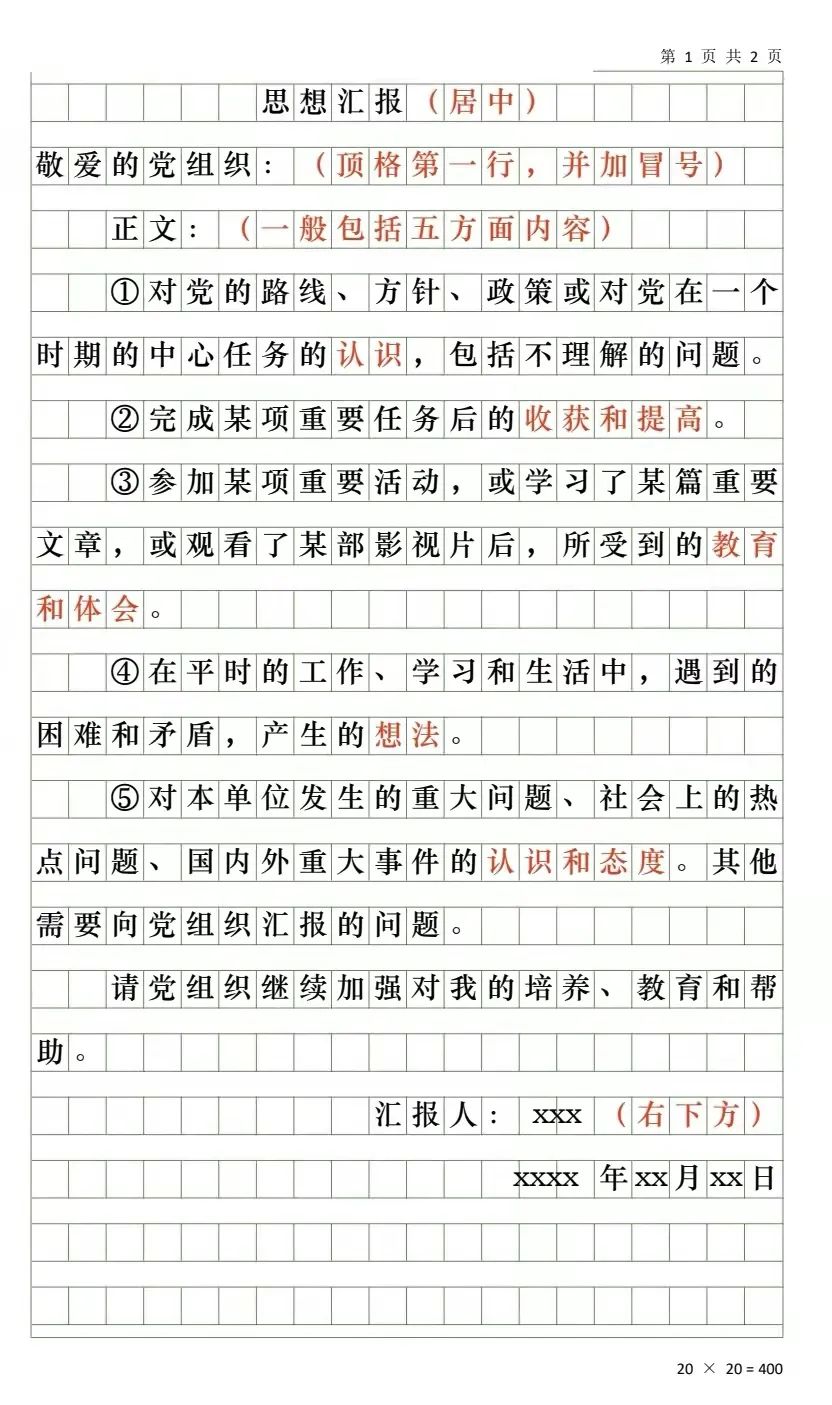 第 1 页 共 2 页
思想汇报（居中）
敬爱的党组织：（顶格第一行，并加冒号）
正文：（一般包括五方面内容）
①对党的路线、方针、政策或对党在一个
时期的中心任务的认识，包括不理解的问题。
②完成某项重要任务后的收获和提高。
③参加某项重要活动，或学习了某篇重要
文章，或观看了某部影视片后，所受到的教育
和体会。
④在平时的工作、学习和生活中，遇到的
困难和矛盾，产生的想法。
⑤对本单位发生的重大问题、社会上的热
点问题、国内外重大事件的认识和态度。其他
需要向党组织汇报的问题。
请党组织继续加强对我的培养、教育和帮
助。
汇报人： xxx （右下方）
xxxx 年xx月xx日
20 × 20 = 400